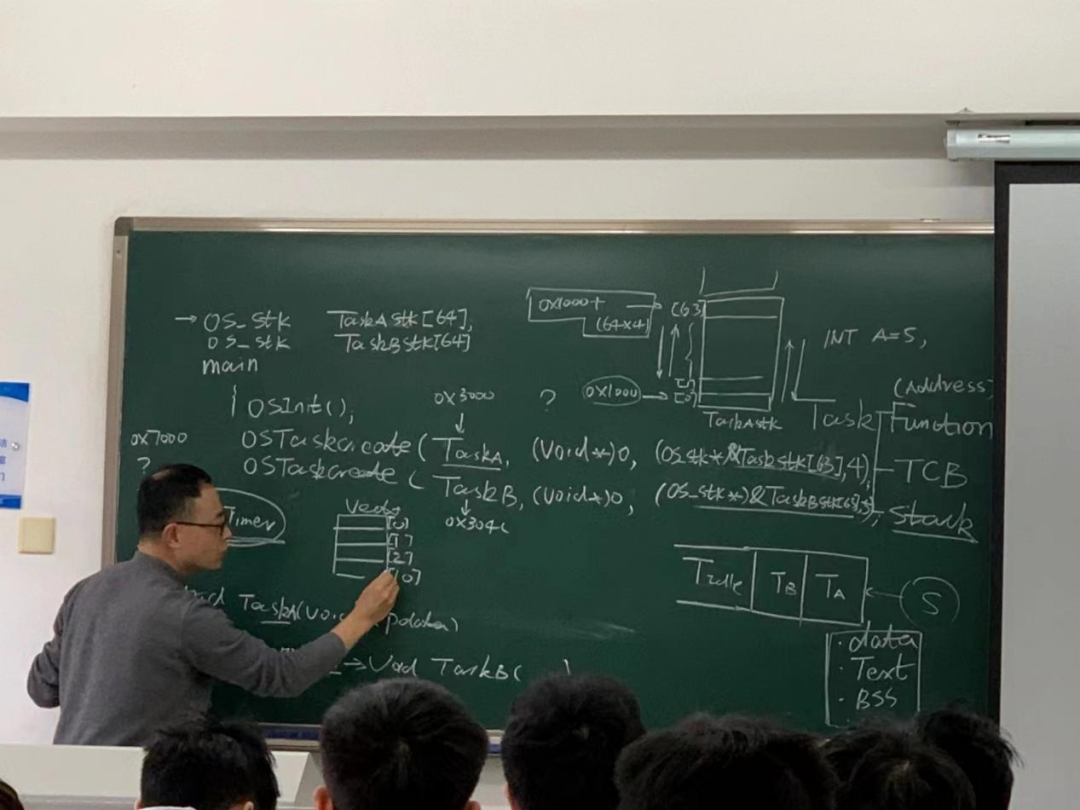 → OS_Stk TaskAStk[64],
OS_Stk TaskBStk[64]
main
{ OSInit();
0x3000
?
0x7000
?
OSTaskcreate (TaskA, (void*)0, (OS_stk*)&TaskStk[63],4),
OSTaskcreate (TaskB, (void*)0, (OS_stk*)&TaskBStk[63],5),
0x304c
Timer
[0]
[1]
[2]
[10]
TaskA(void *pdata)
→ Void TaskB( )
0x1000+
(64x4)
[63]
[1]
0x1000 → [0]
TaskAstk
INT A=5,
(Address)
Task
Function
TCB
Stack
TIdle TB TA
S
· data
· Text
· BSS